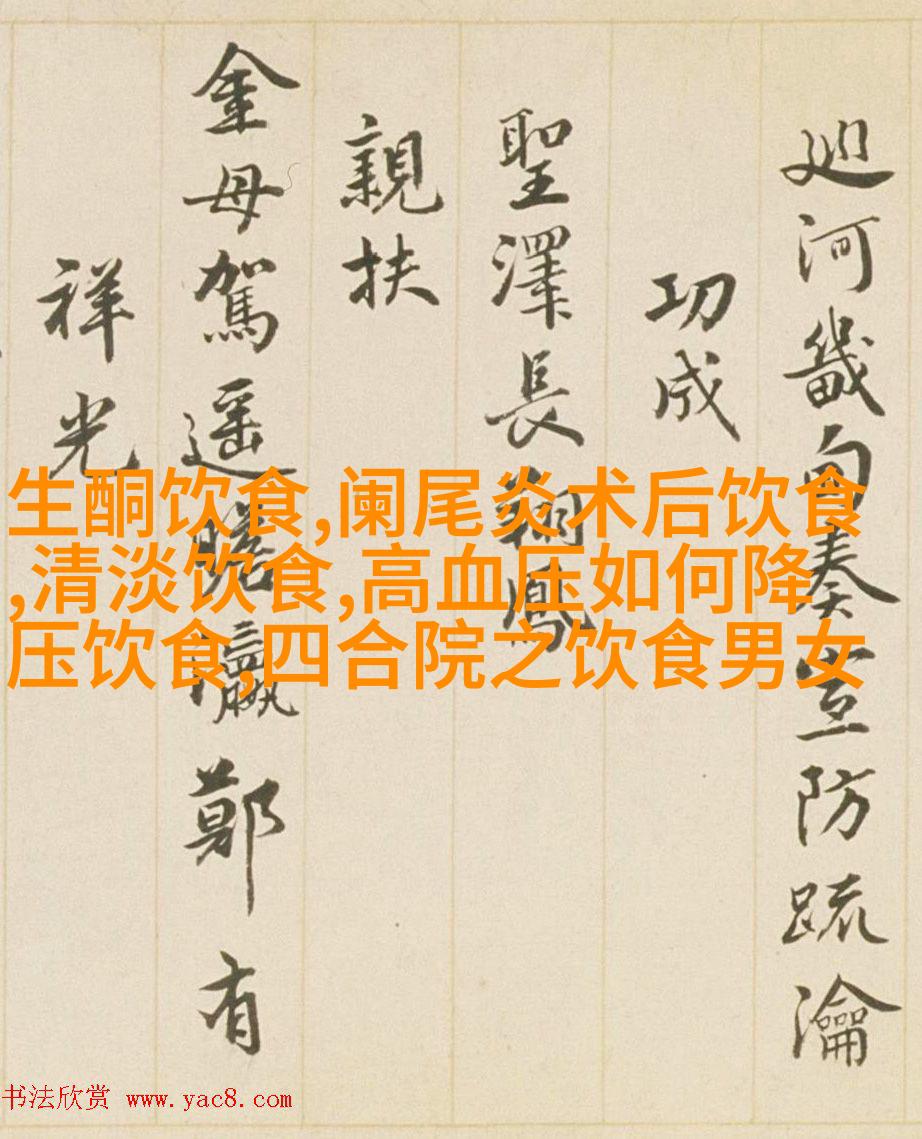 廵河畿甸奏宣防疏瀹
功成
聖澤長翔鳳
親扶
金母駕遥瞻鄭有
祥光
生酮饮食,阑尾炎术后饮食
,清淡饮食,高血压如何降
压饮食,四合院之饮食男女
书法欣赏 www.yac8.com